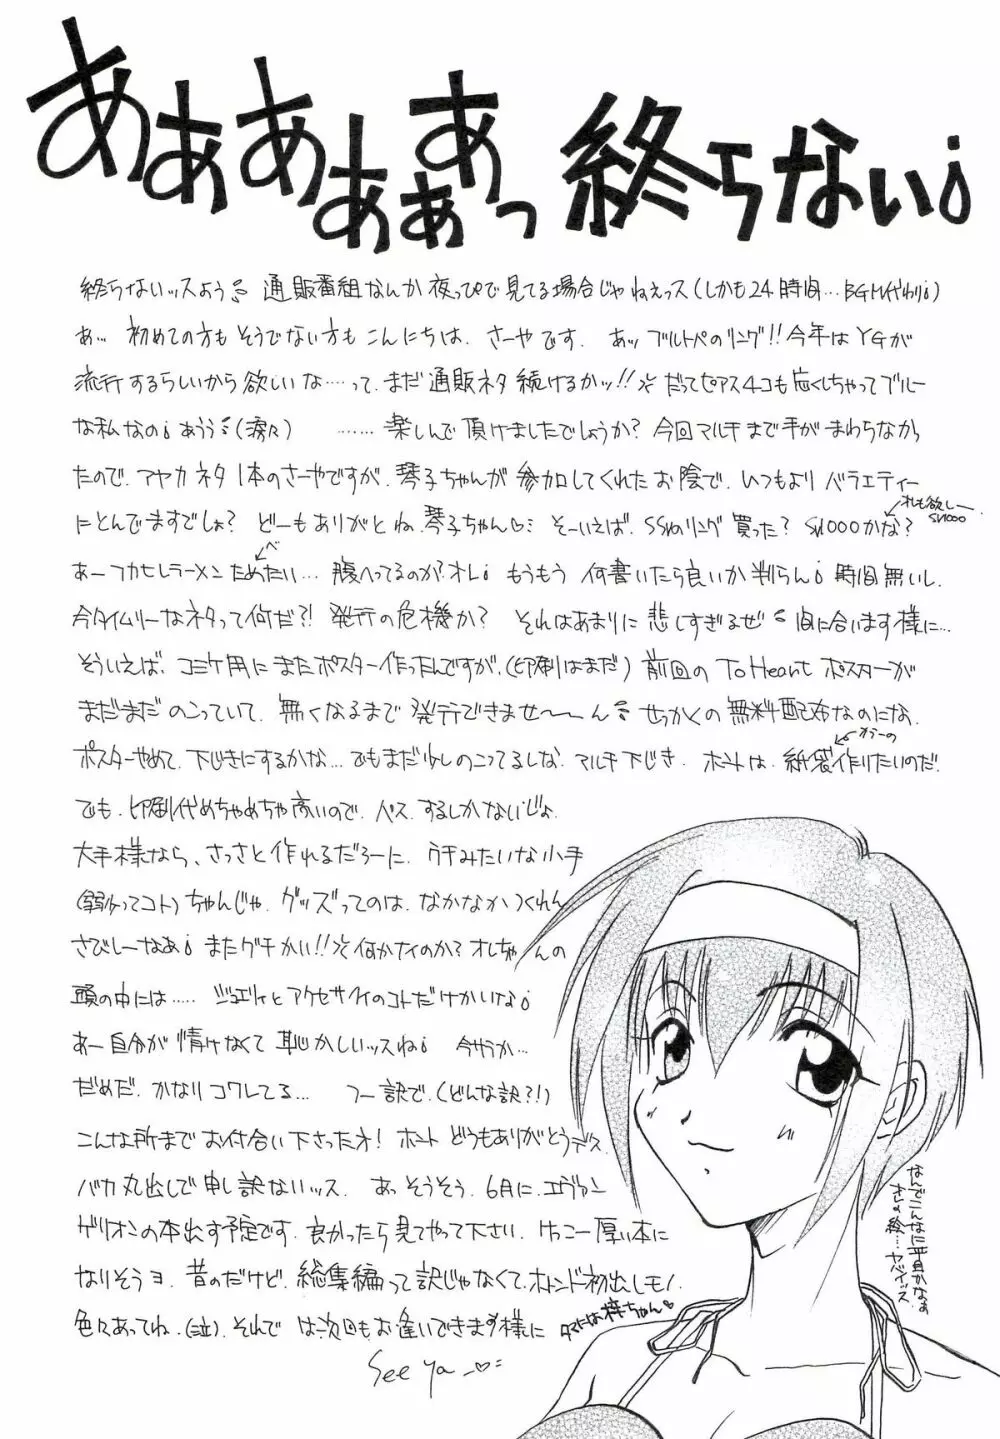 あああああぁあっ 終らない¡
終らないッスよう 通販番組なんか夜っぴで見てる場合じゃねえっス(しかも24時間…BGM代わり¡)
あ… 初めての方もそうでない方もこんにちは、さーやです。 あッ ブルトペのリング!! 今年はYGが
流行するらしいから欲しいな……って、まだ通販ネタ続けるかッ!! だってピアス4コも亡くしちゃってブルー
な私なの¡ あうう(涙々) ……楽しんで頂けましたでしょうか? 今回マルチまで手がまわらなかっ
たので、アヤカネタ1本のさーやですが、琴子ちゃんが参加してくれたお陰で、いつもよりバラエティー
にとんでますでしょ? どーもありがとね、琴子ちゃん♡ そーいえば、SSNのリング買った? SV1000かな?
オレも欲しー SV1000
あーフカヒレラーメンためたい… 腹へってるのか?オレ¡ もうもう 何書いたら良いか判らん¡ 時間無いし、
べ
今タイムリーなネタって何だ?! 発行の危機か? それはあまりに悲しすぎるぜ 間に合います様に…
そういえば、コミケ用にまたポスター作ったんですが、(印刷はまだ) 前回のTo Heartポスターが
まだまだのこっていて、無くなるまで発行できませ〜〜ん せっかくの無料配布なのにな、
ポスターやめて、下じきにするかな… でもまだ少しのこってるしな、マルチ下じき、 ホントは、紙袋作りたいのだ。
カラーの
でも、印刷代めちゃめちゃ高いので、パス、するしかないじょ
大手様なら、さっさと作れるだろーに、ウチみたいな小手
(弱小ってコト)ちゃんじゃ、グッズってのは、なかなかつくれん
さびしーなあ¡ またグチかい!! 何かナイのか? オレちゃんの
頭の中には…… ジュエリィとアクセサリィのコトだけかいな¡
あー自分が情けなくて恥かしいッスね¡ 今サラか…
だめだ、かなりコワレてる… フー訳で、(どんな訳?!)
こんな所までお付合い下さった方! ホント どうもありがとうデス、
バカ丸出しで申し訳ないッス、 あっそうそう、6月に、エヴァン
ゲリオンの本出す予定です、良かったら見てやって下さい、けっこー厚い本に
なりそうヨ、昔のだけど、総集編って訳じゃなくて、ホトンド初出しモノ、
色々あってね、(泣)、それでは、次回もお逢いできます様に
タマには梓ちゃん♡
See ya
なんでこんなに平目かなぁ
さーやの絵… ヤバイッス